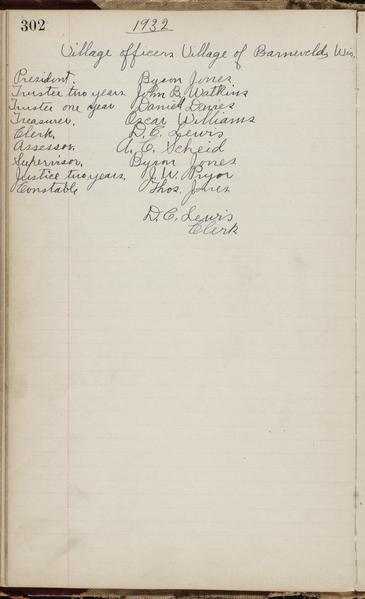 302
1932
Village officers Village of Barneveld, Wis.
President. Byron Jones
Trustee two years John B. Watkins
Trustee one year Daniel Davies
Treasurer, Oscar Williams
Clerk, D. C. Lewis
Assessor A. C. Scheid
Supervisor, Byron Jones
Justice two years, J. W. Pryor
Constable Thos. Jones
D. C. Lewis
Clerk